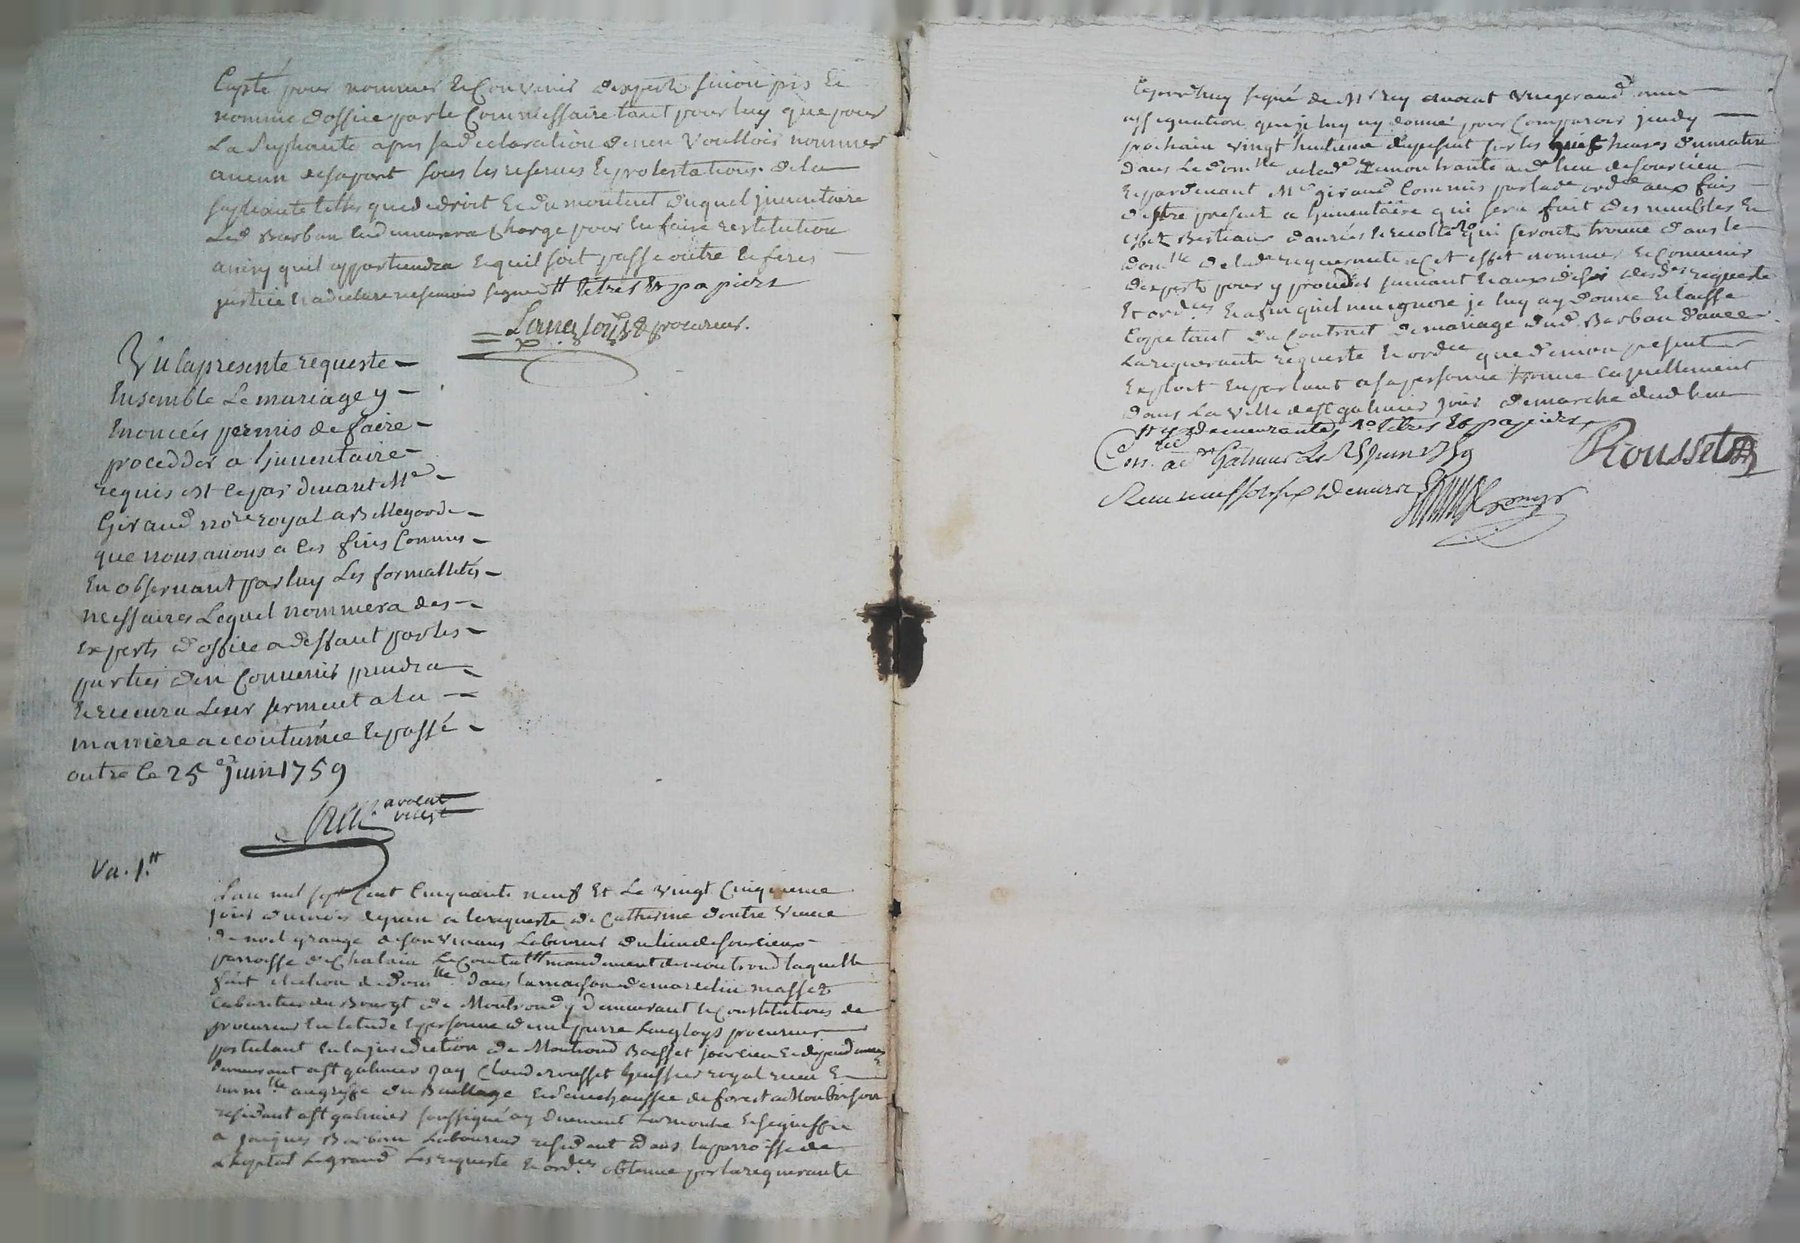 Cupté pour nommer & Convenir dexperts sinon pris &
nommé dofficie par le Commissaire tant pour luy que pour
La Supliante apres sa declaration de nen Vouloir nommer
aucun de sa part sous les reserves & protestations de la
supliante telles que de droit & du montent duquel jnventaire
Led Barban se chargé pour en faire restitution
ainsy quil appartiendra & quil soit passé outre & feres
justice signé lettres & papiers
Langloys procureur.
Vu la presente requeste
Ensemble Le mariage y
Enoncéés permis de faire
procedder a Ljnventaire
requis est ce par devant Me
Giraud nore royal a Bellegarde
que nous avons a ces fins Commis
En observant par luy Les formallités
necessaires Lequel nommera des
Experts d'office a deffaut par les
parties den Convenir prendra
& recevra Leur serment a la
maniere accoutumée & passé
outre ce 25e juin 1759
avocat
Va. 1.tt
Lan mil sept Cent Cinquante neuf Et Le Vingt Cinquieme
jour du mois de juin a la requeste de Catherine doutre Veuve
de noel grange de son Vivant Laboureur du lieu de sourcieux
parroisse de Chalain Le Comtal mandement de montrond laquelle
fait election de domlle dans la maison de marcelin masset
Cabaretier du Bourgt de Montrond y demeurant & Constitutions de
procureur en letude & personne de me pierre Langloys procureur
postulant en la jurediction de Montrond Boisset & dependances
demeurant a st galmier jay Claude rousset huissier royal reçu &
immle au greffe du Baillage & senechaussée de forest a Montbrison
residant a st galmier soussigné ay duement & signiffié
a jacques Barban Laboureur residant dans la parroisse de
Lhopital Legrand Les requeste & ordce obtenue par la requerante
Cejourdhuy signé de Mr rey avocat
assignation que je luy ay donné pour Comparoir jeudy
prochain vingt huitieme du present sur les huit heures du matin
dans Le domlle de lade Remontrante aud lieu de sourcieu
& pardevant Me giraud Commis par lade ordce aux fins
d'estre present a Ljnventaire qui sera fait des meubles &
effet Bestiaux danrées & recoltes qui seront trouvé dans le
domlle de lade requerante a Cet effet nommer & Convenir
dexperts pour y proceder suivant & aux desir desd requeste
& ordce & afin quil nen ignore je luy ay donné & laissé
Copie tant du Contrat de mariage dud Barban davec
La requerante requeste & ordce que de mon present
Exploit En parlant a sa personne trouvé
dans La Ville de st galmier jour de marché dud lieu
lettres & papiers
Rousset
Con. a st Galmier Le 25 juin 1759
Recu neuf sols six deniers